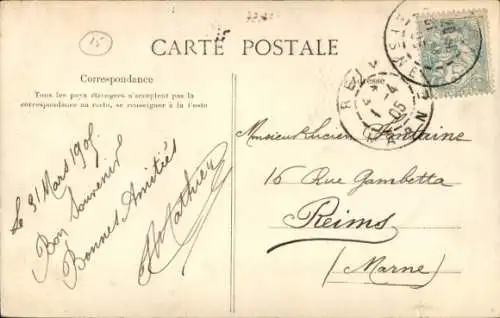 15
CARTE POSTALE
Correspondance
Tous les pays étrangers n'acceptent pas la
correspondance au recto, se renseigner à la Poste
Adresse
REIMS
1-4
05
MARNE
Le 31 Mars 1905
Bon Souvenir
Bonnes Amitiés
Mathieu
Monsieur Lucien Fontaine
16 Rue Gambetta
Reims
(Marne)